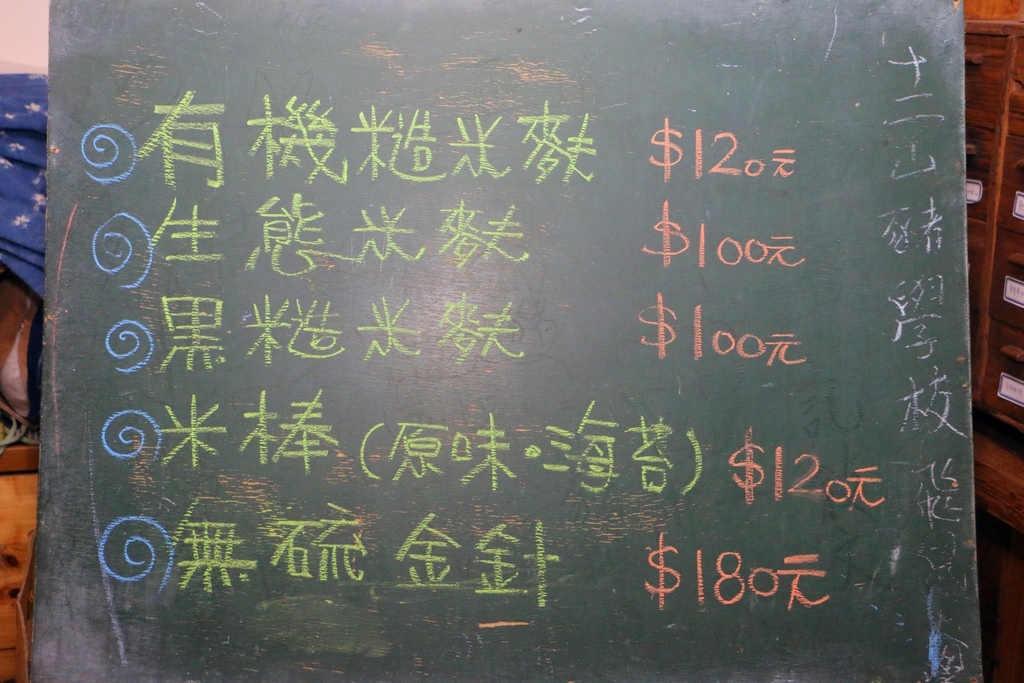 有機糙米麩 $120元
生態米麩 $100元
黑糙米麩 $100元
米棒(原味·海苔) $120元
無硫金針 $180元
十二山豬學校